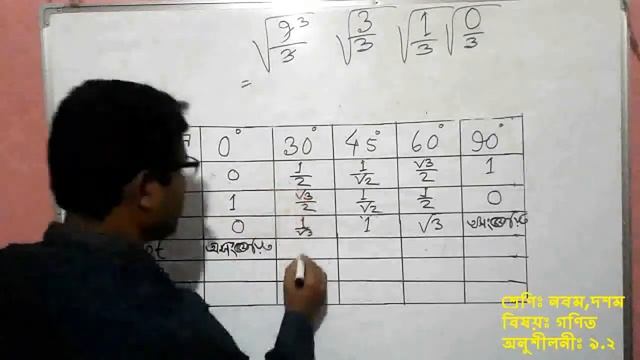 √9/3 √3/3 √1/3 √0/3
=
0° 30° 45° 60° 90°
0 1/2 1/√2 √3/2 1
1 √3/2 1/√2 1/2 0
0 1/√3 1 √3 অসংজ্ঞায়িত
অসংজ্ঞায়িত
শ্রেণিঃ নবম,দশম
বিষয়ঃ গণিত
অনুশীলনীঃ ৯.২